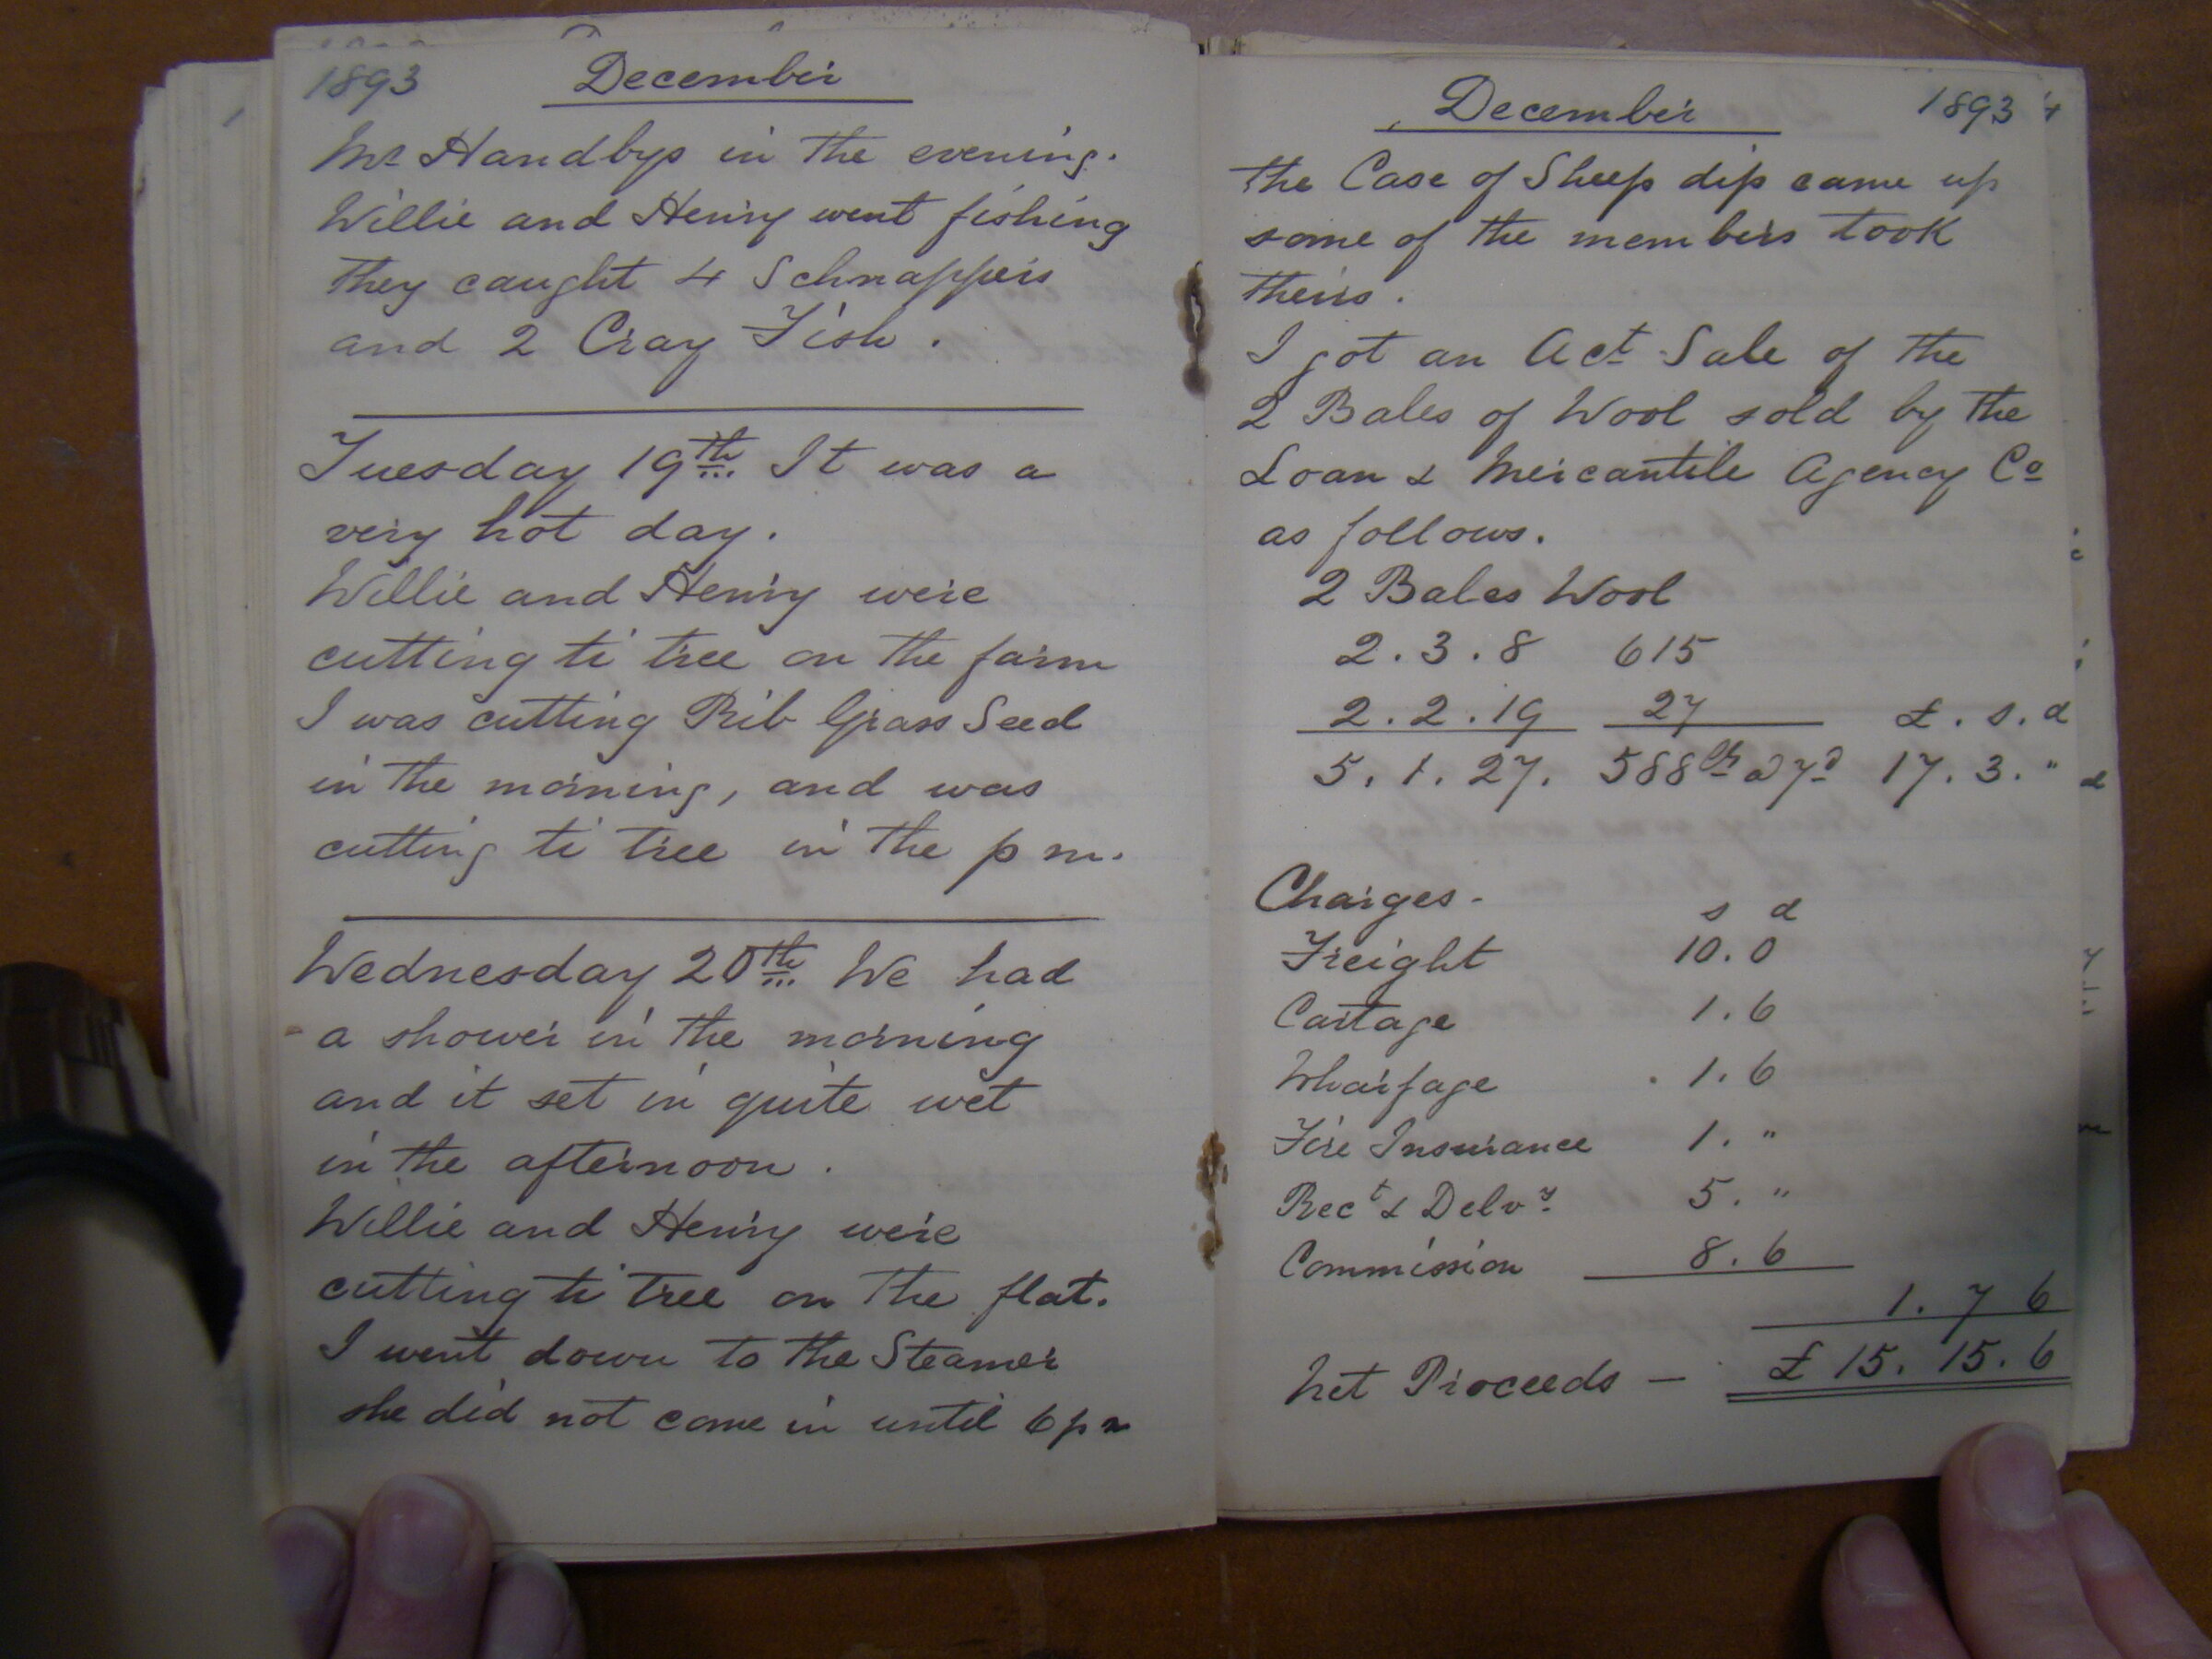 1893 December
Mr Handbys in the evening.
Willie and Henry went fishing
they caught 4 Schnappers
and 2 Cray Fish.
Tuesday 19th It was a
very hot day.
Willie and Henry were
cutting ti tree on the farm
I was cutting Rib Grass Seed
in the morning, and was
cutting ti tree in the p m.
Wednesday 20th We had
a shower in the morning
and it set in quite wet
in the afternoon.
Willie and Henry were
cutting ti tree on the flat.
I went down to the Steamer
she did not come in until 6 p m
December 1893
the Case of Sheep dip came up
some of the members took
theirs.
I got an Act Sale of the
2 Bales of Wool sold by the
Loan & Mercantile Agency Co
as follows.
2 Bales Wool
2.3.8 615
2.2.19 27 £. s. d
5.1.27. 588 lb @ 7d 17.3."
Charges. s d
Freight 10.0
Cartage 1.6
Wharfage 1.6
Fire Insurance 1."
Rect & Delvy 5."
Commission 8.6
1. 7 6
Net Proceeds — £15.15.6